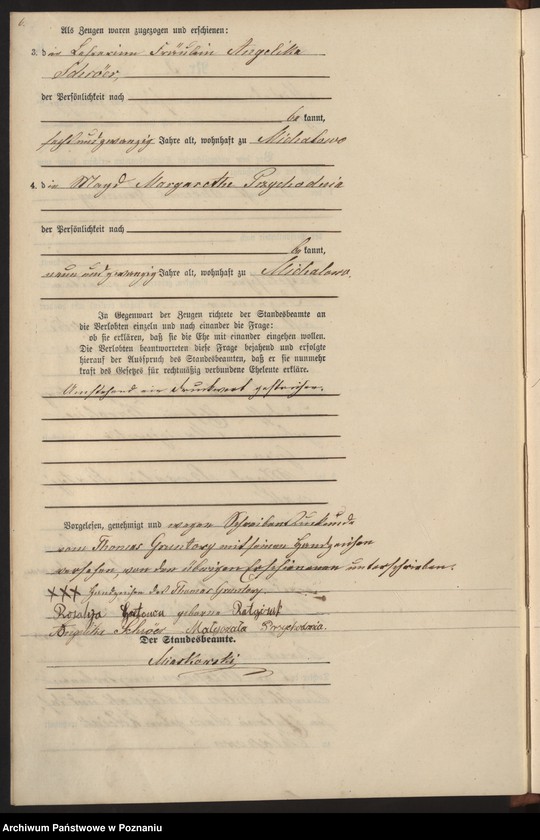 6.
Als Zeugen waren zugezogen und erschienen:
3. die Lehrerin Fräulein Angelika
Schröer,
der Persönlichkeit nach
be kannt,
sechsundzwanzig Jahre alt, wohnhaft zu Michalowo
4. die Magd Margarethe Przychodnia
der Persönlichkeit nach
be kannt,
neunundzwanzig Jahre alt, wohnhaft zu Michalowo.
In Gegenwart der Zeugen richtete der Standesbeamte an
die Verlobten einzeln und nach einander die Frage:
ob sie erklären, daß sie die Ehe mit einander eingehen wollen.
Die Verlobten beantworteten diese Frage bejahend und erfolgte
hierauf der Ausspruch des Standesbeamten, daß er sie nunmehr
kraft des Gesetzes für rechtmäßig verbundene Eheleute erkläre.
Umstehend ein Druckwort gestrichen.
Vorgelesen, genehmigt und wegen Schreibensunkunde
vom Thomas Gruntowy mit seinen Handzeichen
versehen, von den übrigen Erschienenen unterschrieben.
XXX Handzeichen des Thomas Gruntowy.
Rozalja geborne
Angelika Schröer Małgorzata Przychodnia.
Der Standesbeamte.
Miaskowski
Archiwum Państwowe w Poznaniu